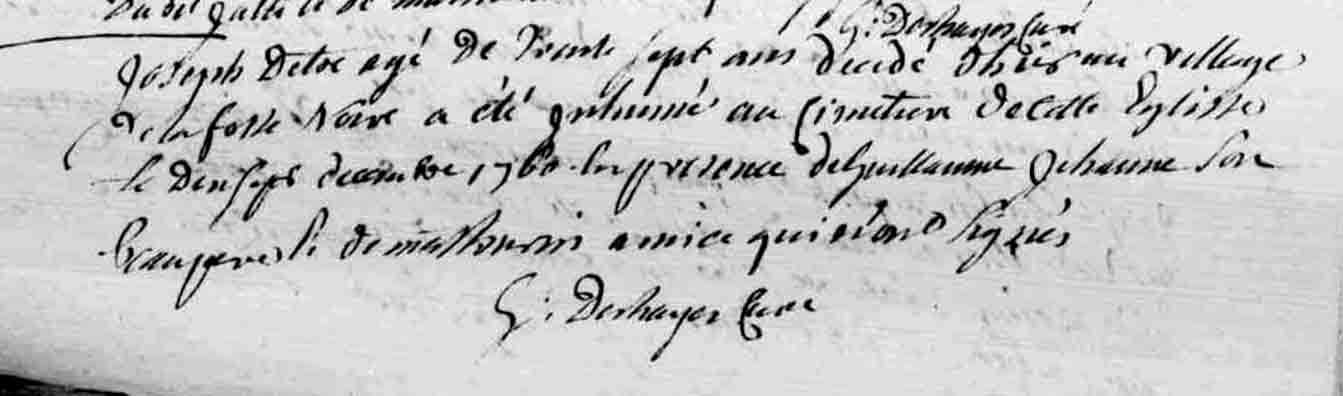 G: Deshayes Curé
Joseph Detoc agé de trente sept ans décédé d'hier au village
de la fosse Noire a été Inhumé au Cimetiere de cette Eglisse
le dix sept decembre 1760 En presence de Guillaume Jehanne Son
beaupere et de mathurin amice qui n'ont Signés
G: Deshayes Curé